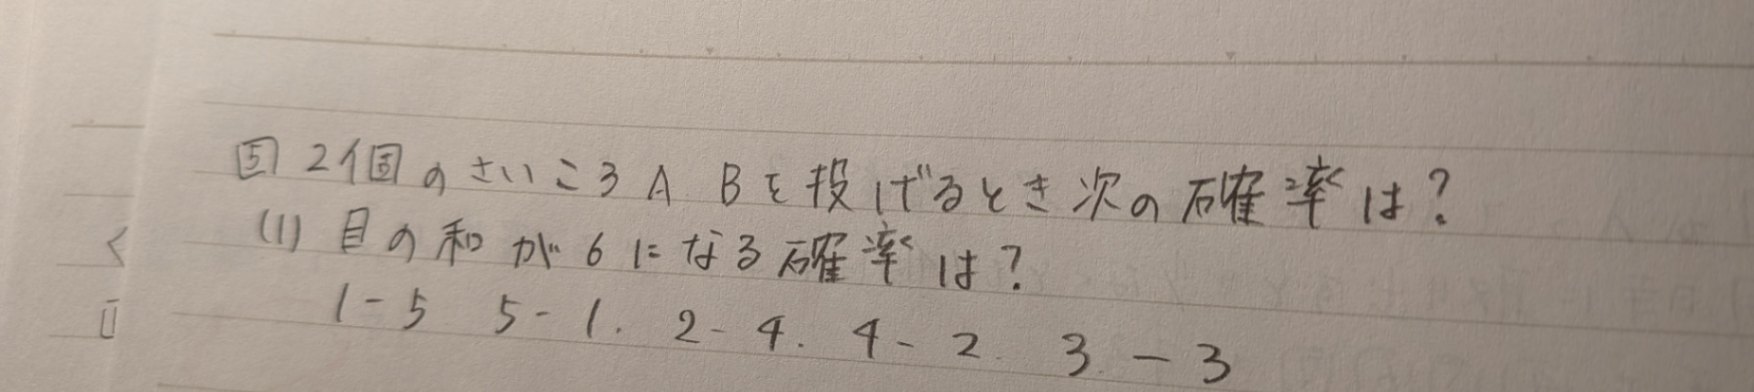 5 2個のさいころA Bを投げるとき次の確率は?
(1) 目の和が6になる確率は?
1-5 5-1. 2-4. 4-2. 3-3